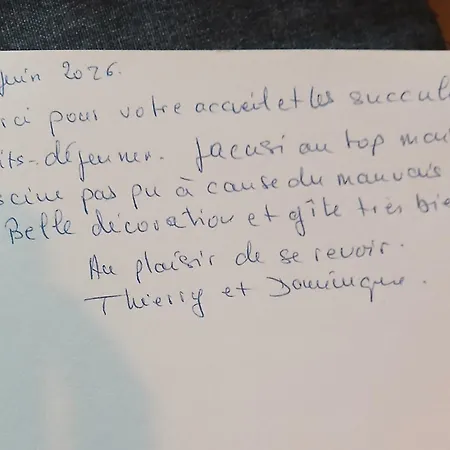 juin 2026.
rci pour votre accueil et les succul
its-déjeuner. Jacusi au top mai
scine pas pu à cause du mauvais
Belle décoration et gîte très bie
Au plaisir de se revoir.
Thierry et Dominique.